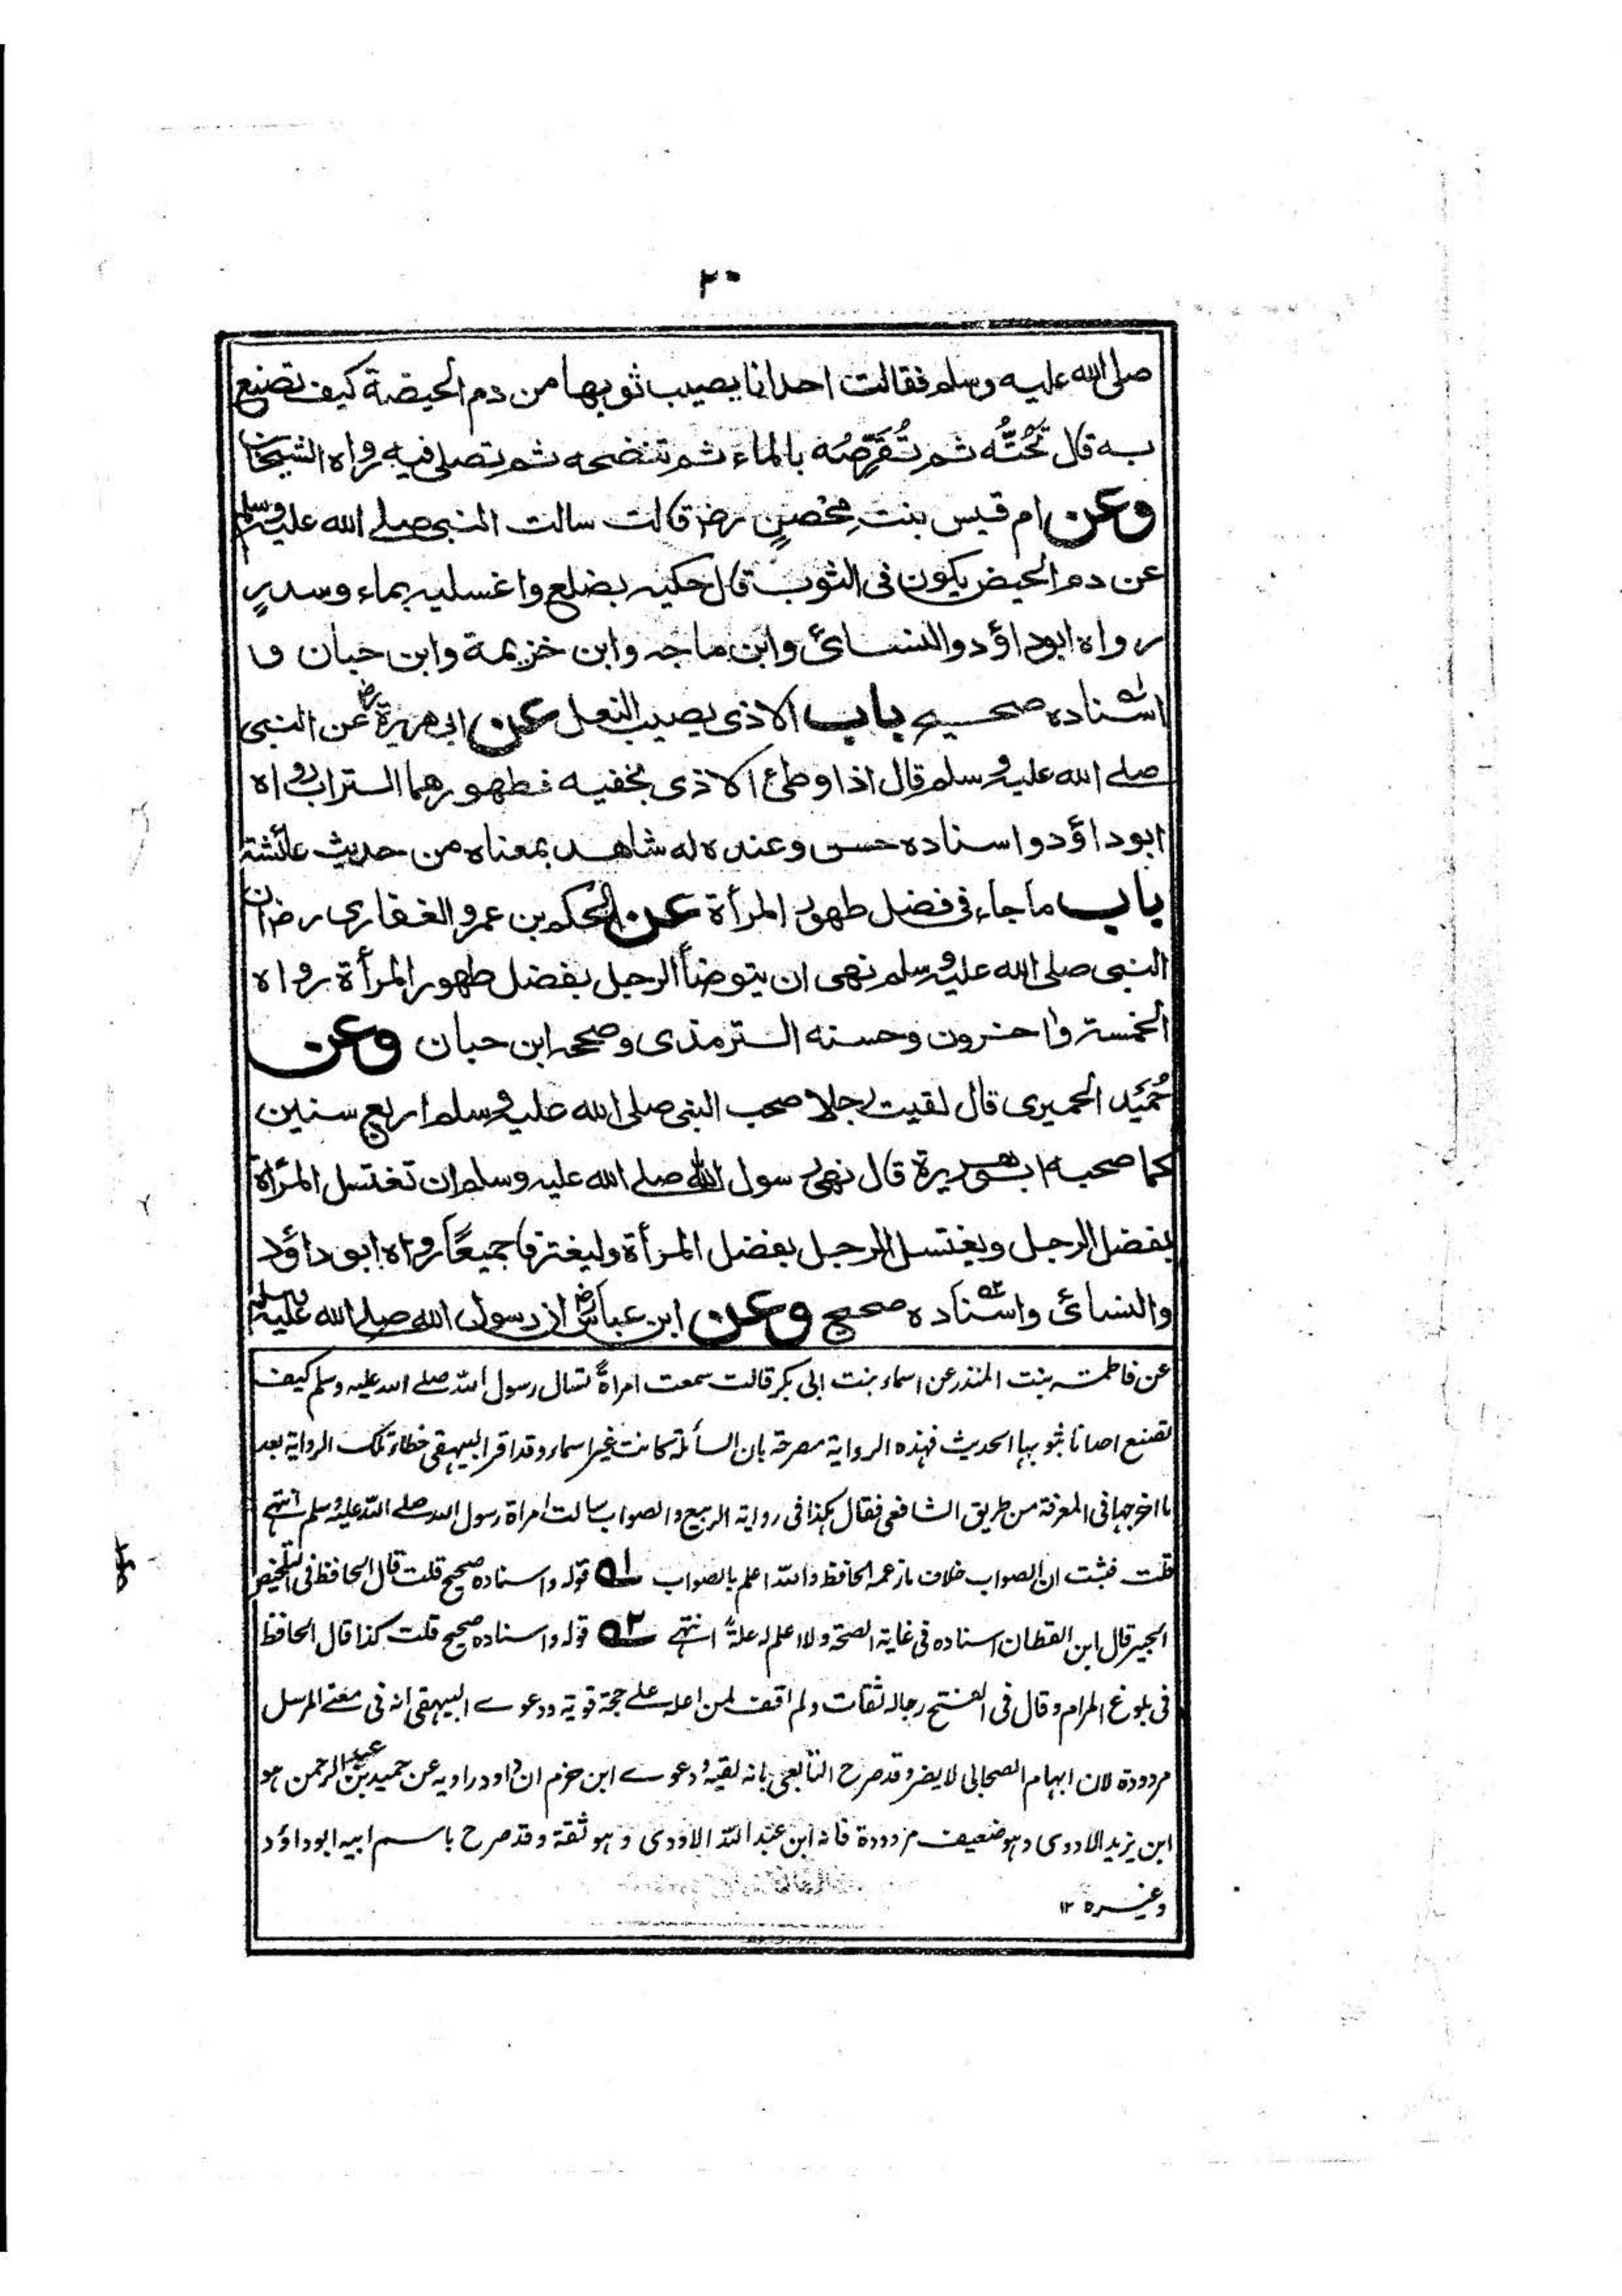 ٢٠
صلى الله عليه وسلم فقالت احدانا يصيب ثوبها من دم الحيضة كيف تصنع
به قال تَحُتُّه ثم تُقَرِّصُه بالماء ثم تنضحه ثم تصلى فيه رواه الشيخان
وعن ام قيس بنت مِحْصَنٍ رضـ قالت سالت النبى صلے الله عليه وسلم
عن دم الحيض يكون فى الثوب قال حكيه بضلع واغسليه بماء وسدرٍ
رواه ابوداؤد والنسائى وابن ماجه وابن خزيمة وابن حبان و
اسناده صحيح باب الاذى يصيب النعل عن ابى هريرة رضـ عن النبى
صلے الله عليه وسلم قال اذا وطئ الاذى بخفيه فطهورهما التراب رواه
ابوداؤد واسناده حسن وعنده له شاهد بمعناه من حديث عائشة
باب ماجاء فى فضل طهور المرأة عن الحكم بن عمرو الغفارى رضـ ان
النبى صلى الله عليه وسلم نهى ان يتوضأ الرجل بفضل طهور المرأة رواه
الخمسة واخرون وحسنه الترمذى وصححه ابن حبان وعن
حُمَيْد الحميرى قال لقيت رجلا صحب النبى صلى الله عليه وسلم اربع سنين
كما صحبه ابوهريرة قال نهى رسول الله صلے الله عليه وسلم ان تغتسل المرأة
بفضل الرجل ويغتسل الرجل بفضل المرأة وليغترفا جميعًا رواه ابوداؤد
والنسائى واسناده صحيح وعن ابن عباس رضـ ان رسول الله صلے الله عليه وسلم
عن فاطمة بنت المنذر عن اسماء بنت ابى بكر قالت سمعت امراةً تسال رسول الله صلے الله عليه وسلم كيف
تصنع احدانا بثوبها الحديث فهذه الرواية مصرحة بان السائلة كانت غير اسماء وقد اقر البيهقى خطاء تلك الرواية بعد
ما اخرجها فى المعرفة من طريق الشافعى فقال هكذا فى رواية الربيع والصواب سالت امراة رسول الله صلے الله عليه وسلم انتهے
قلت فثبت ان الصواب خلاف مازعمه الحافظ والله اعلم بالصواب ١ه قوله واسناده صحيح قلت قال الحافظ فى التلخيص
الحبير قال ابن القطان اسناده فى غاية الصحة ولا اعلم له علةً انتهے ٢ه قوله واسناده صحيح قلت كذا قال الحافظ
فى بلوغ المرام وقال فى الفتح رجاله ثقات ولم اقف لمن اعله علے حجة قوية ودعوے البيهقى انه فى معنے المرسل
مردودة لان ابهام الصحابى لا يضر وقد صرح التابعى بانه لقيه ودعوے ابن حزم ان داود راويه عن حميد بن عبد الرحمن هو
ابن يزيد الاودى وهو ضعيف مردودة فانه ابن عبد الله الاودى وهو ثقة وقد صرح باسم ابيه ابوداؤد
وغيره ١٢